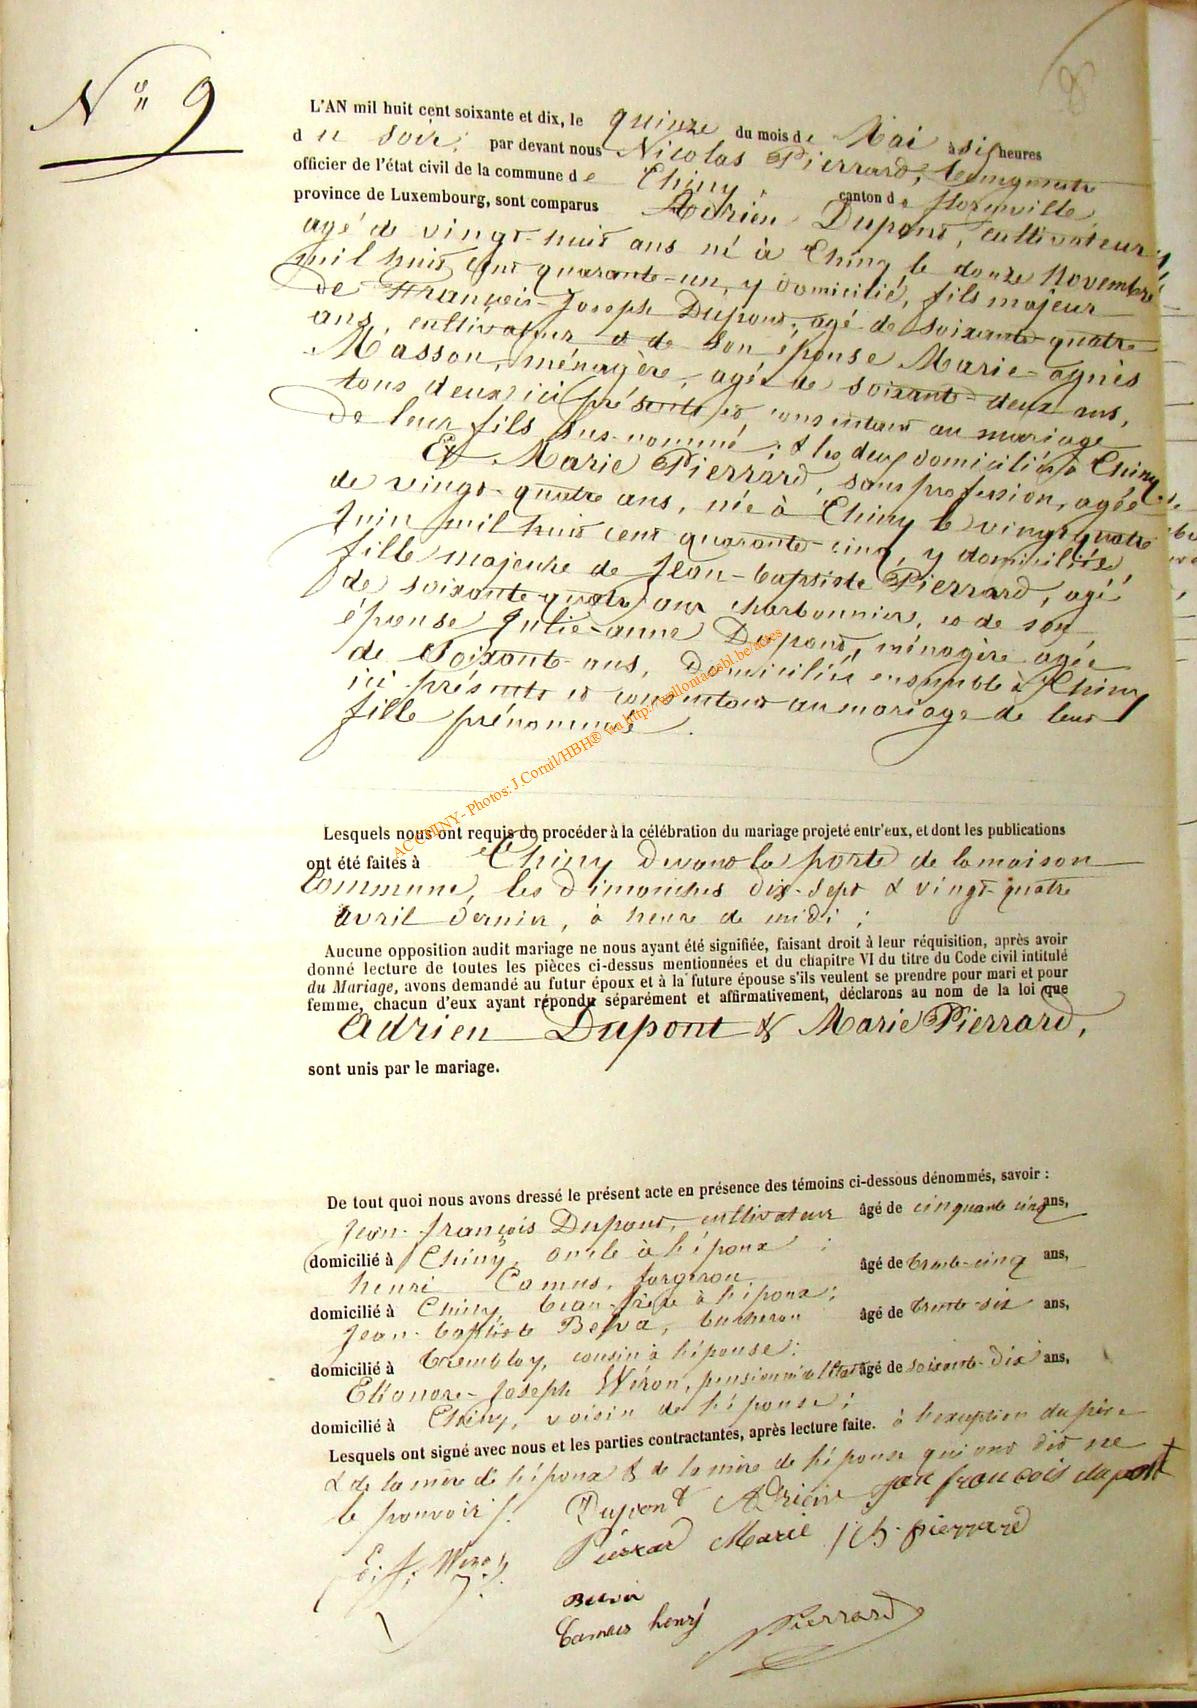 Nº 9
8
L'AN mil huit cent soixante et dix, le quinze du mois de Mai à six heures
du soir, par devant nous Nicolas Pierrard, bourgmestre
officier de l'état civil de la commune de Chiny, canton de florenville
province de Luxembourg, sont comparus Adrien Dupont, cultivateur,
agé de vingt-huit ans né à Chiny le douze Novembre
mil huit cent quarante-un, y domicilié, fils majeur
de François-Joseph Dupont, agé de soixante-quatre
ans, cultivateur et de son épouse Marie-agnès
Masson, ménagère, agée de soixante-deux ans,
tous deux ici présents et consentant au mariage
de leur fils sus-nommé; & les deux domiciliés à Chiny
Et Marie Pierrard, sans profession, agée
de vingt-quatre ans, née à Chiny le vingt quatre
Juin mil huit cent quarante-cinq, y domiciliée
fille majeure de Jean-baptiste Pierrard, agé
de soixante-quatre ans charbonnier, et de son
épouse Julie-anne Dupont, ménagère agée
de soixante-ans, domiciliés ensemble à Chiny
ici présents et consentant au mariage de leur
fille prénommée.
AC CHINY - Photos: J.Cornil/HBH® via http://walloniaasbl.be/actes
Lesquels nous ont requis de procéder à la célébration du mariage projeté entr'eux, et dont les publications
ont été faites à Chiny devant la porte de la maison
Commune, les dimanches dix-sept & vingt-quatre
avril dernier, à heure de midi;
Aucune opposition audit mariage ne nous ayant été signifiée, faisant droit à leur réquisition, après avoir
donné lecture de toutes les pièces ci-dessus mentionnées et du chapitre VI du titre du Code civil intitulé
du Mariage, avons demandé au futur époux et à la future épouse s'ils veulent se prendre pour mari et pour
femme, chacun d'eux ayant répondu séparément et affirmativement, déclarons au nom de la loi que
Adrien Dupont & Marie Pierrard,
sont unis par le mariage.
De tout quoi nous avons dressé le présent acte en présence des témoins ci-dessous dénommés, savoir :
Jean-françois Dupont, cultivateur âgé de cinquante cinq ans,
domicilié à Chiny, oncle à l'époux;
henri Camus, forgeron âgé de trente-cinq ans,
domicilié à Chiny, beau-frère à l'époux;
Jean-baptiste Belva, bucheron âgé de trente-six ans,
domicilié à trembloy, cousin à l'épouse;
Eléonore-Joseph Wéron, pensionné âgé de soixante-dix ans,
domicilié à Chiny, voisin de l'épouse;
Lesquels ont signé avec nous et les parties contractantes, après lecture faite. à l'exception du père
& de la mère de l'époux & de la mère de l'épouse qui ont dit ne
le pouvoir.
Dupont Adrien jan francois dupont
Pierrard Marie J b pierrard
Camus henri
Pierrard